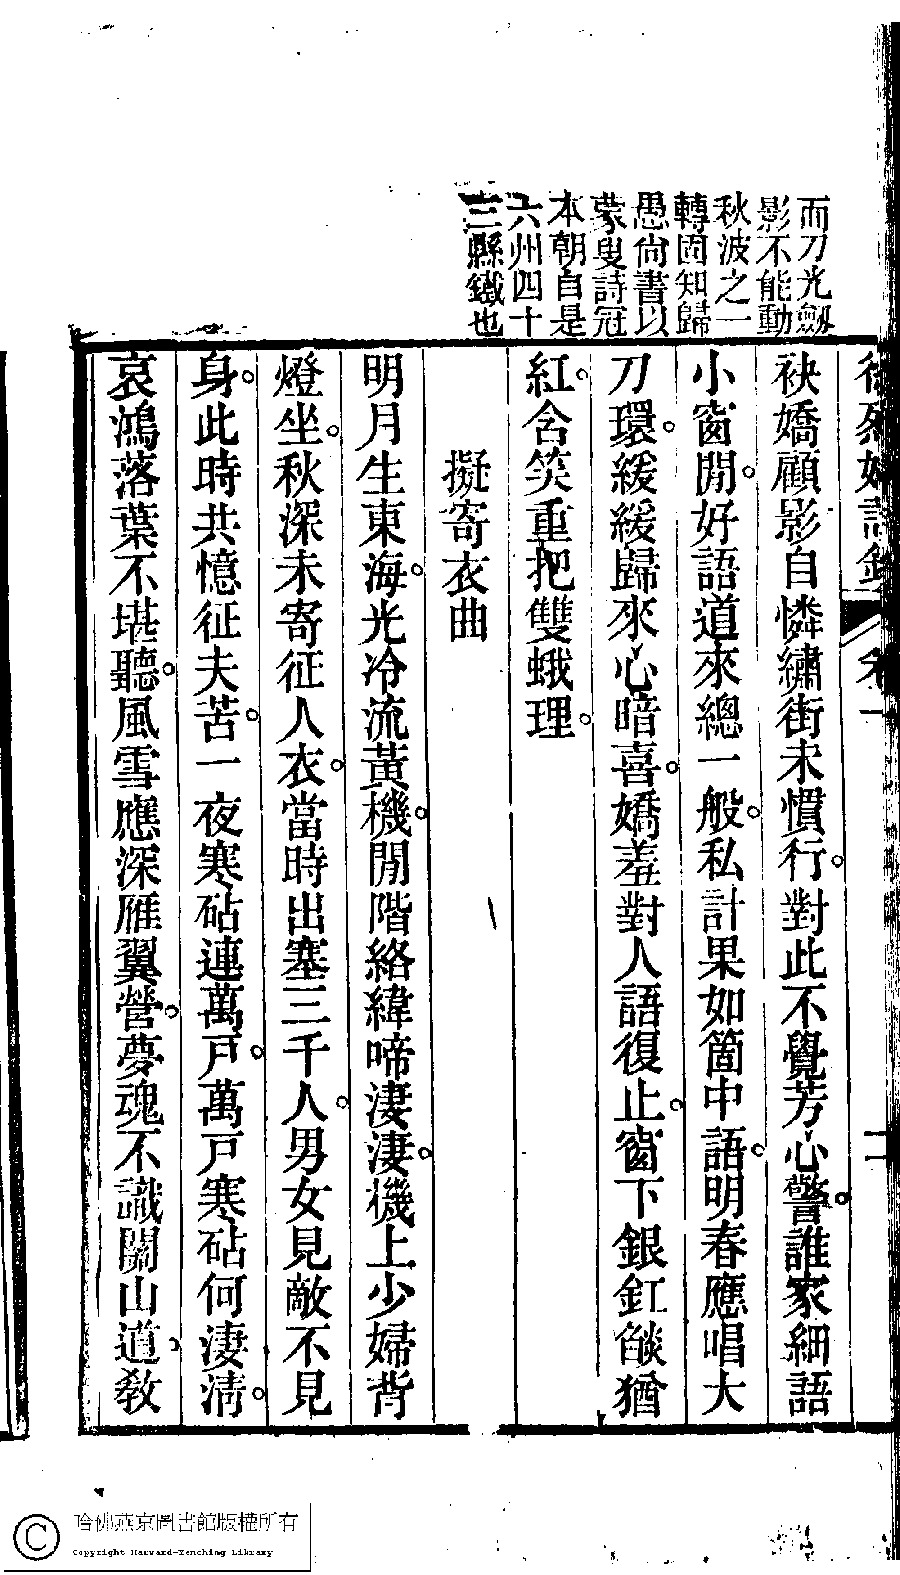 而刀光劔
影不能動
秋波之一
轉固知歸
愚尚書以
蒙叟詩冠
本朝自是
六州四十
三縣鐵也
徐烈婦詩鈔 卷一 二
袂嬌顧影自憐繡街未慣行。對此不覺芳心警。誰家細語
小窗閒。好語道來總一般。私計果如箇中語。明春應唱大
刀環。緩緩歸來心暗喜。嬌羞對人語復止。窗下銀釭燄猶
紅。含笑重把雙蛾理。
擬寄衣曲
明月生東海。光冷流黃機。閒階絡緯啼淒淒。機上少婦背
燈坐。秋深未寄征人衣。當時出塞三千人。男女見敵不見
身。此時共憶征夫苦。一夜寒砧連萬戸。萬戸寒砧何淒清。
哀鴻落葉不堪聽。風雪應深雁翼營。夢魂不識關山道。敎
哈佛燕京圖書館版權所有
Copyright Harvard-Yenching Library